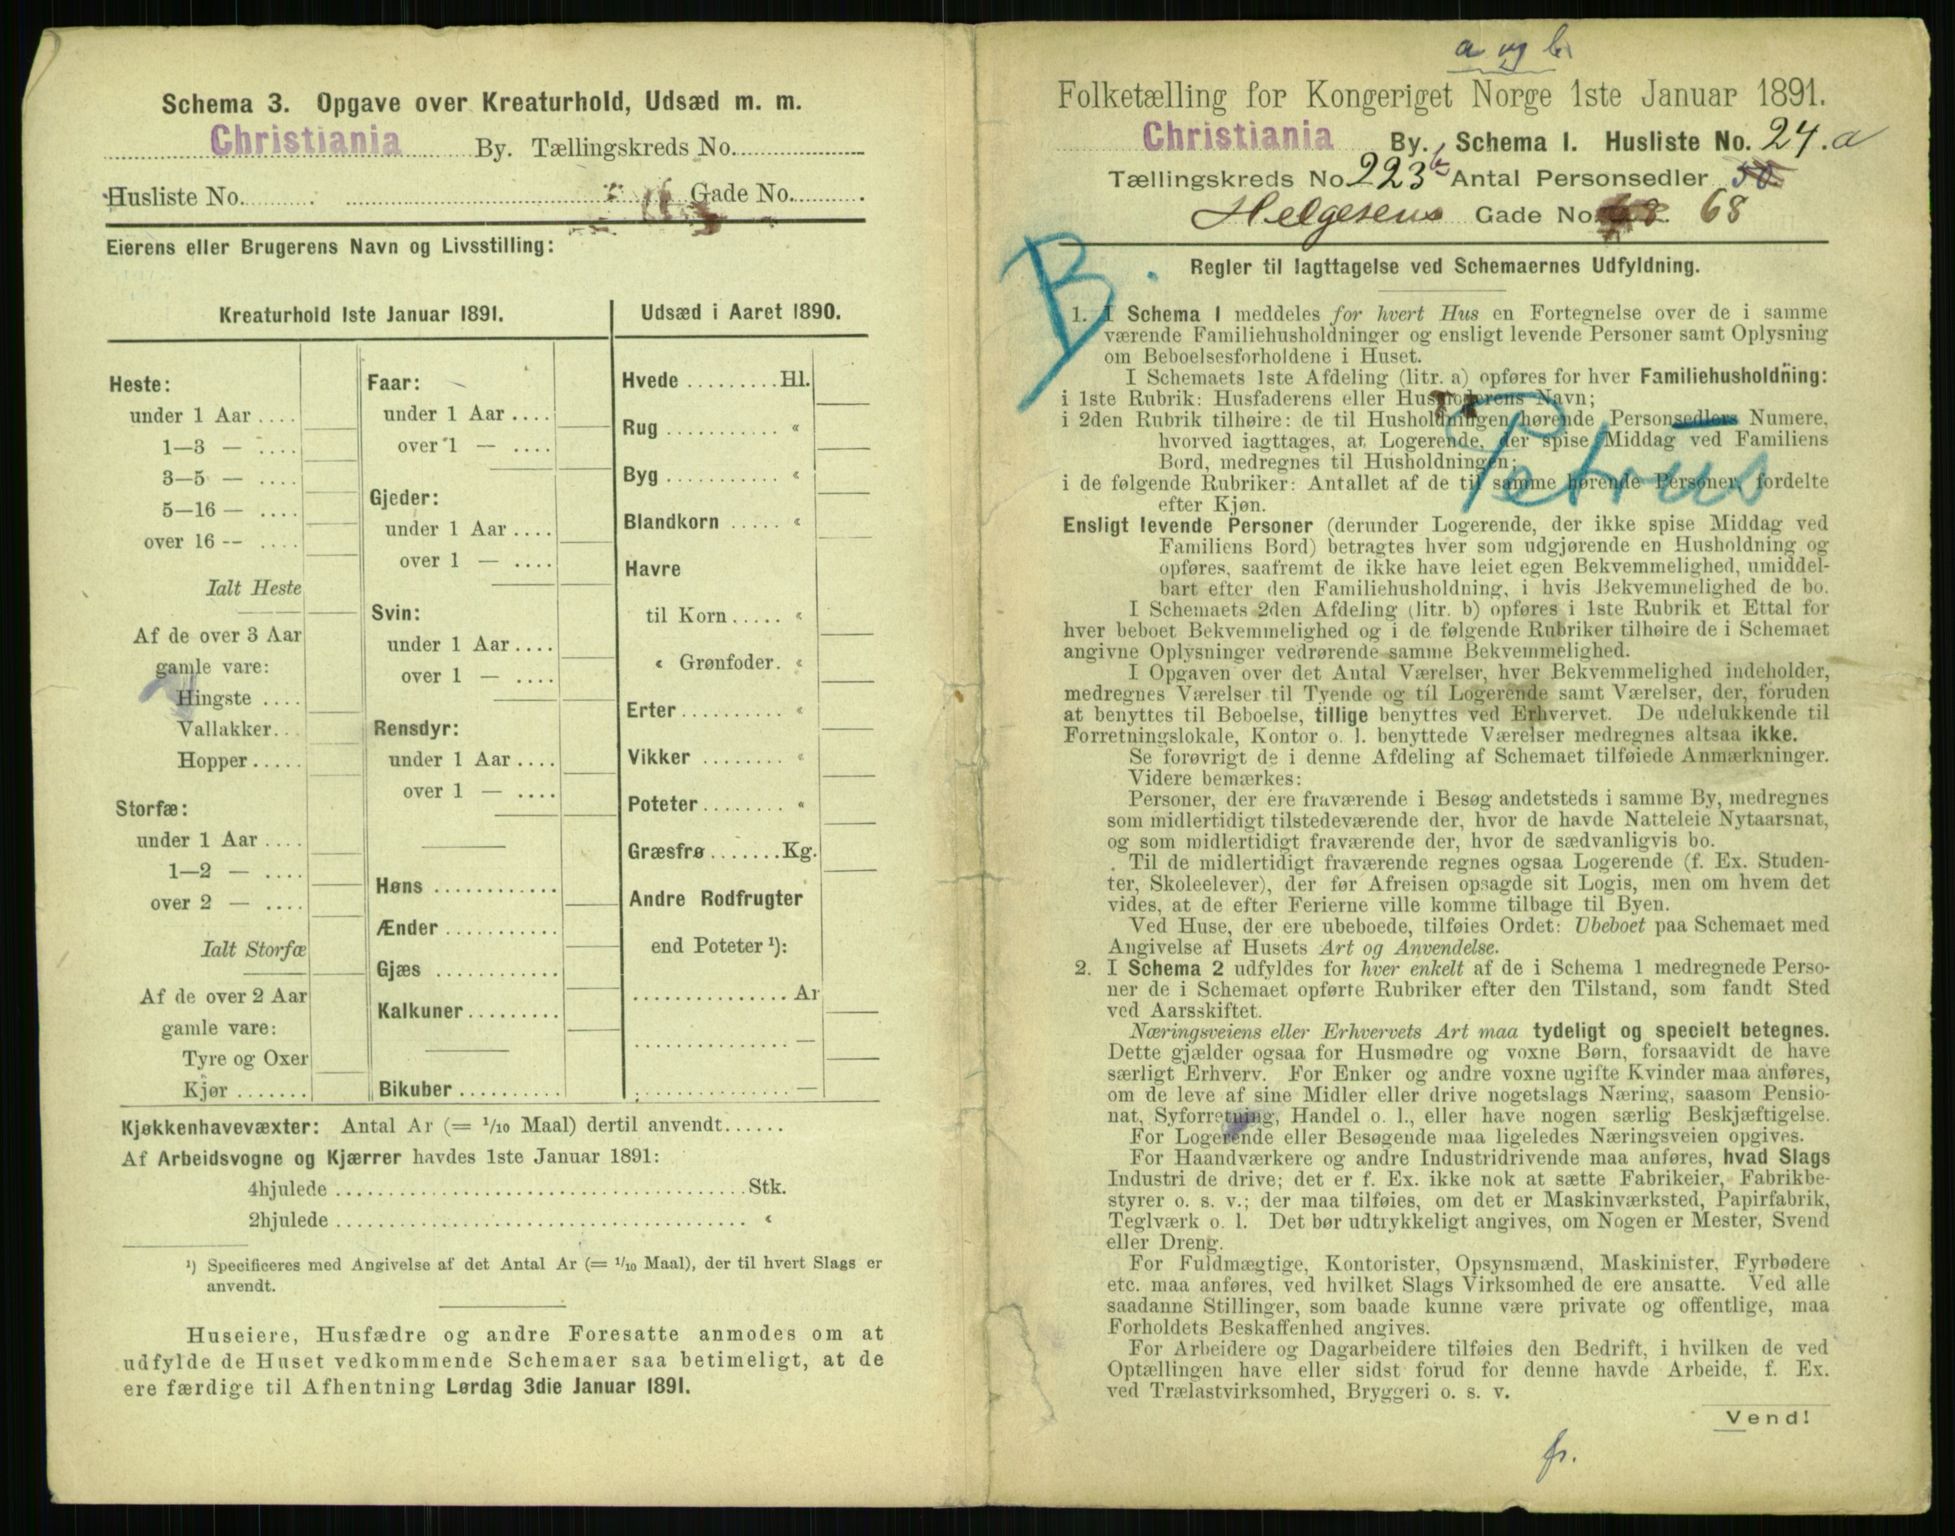 Schema 3. Opgave over Kreaturhold, Udsæd m. m.
Christiania By. Tællingskreds No.
Husliste No. Gade No.
Eierens eller Brugerens Navn og Livsstilling:
Kreaturhold 1ste Januar 1891.
Heste:
under 1 Aar
1—3 —
3—5 —
5—16 —
over 16 --
Ialt Heste
Af de over 3 Aar
gamle vare:
Hingste
Vallakker
Hopper
Storfæ:
under 1 Aar
1—2 —
over 2 —
Ialt Storfæ
Af de over 2 Aar
gamle vare:
Tyre og Oxer
Kjør
Faar:
under 1 Aar
over 1 —
Gjeder:
under 1 Aar
over 1 —
Svin:
under 1 Aar
over 1 —
Rensdyr:
under 1 Aar
over 1 —
Høns
Ænder
Gjæs
Kalkuner
Bikuber
Udsæd i Aaret 1890.
Hvede Hl.
Rug «
Byg «
Blandkorn «
Havre
til Korn «
« Grønfoder. «
Erter «
Vikker «
Poteter «
Græsfrø Kg.
Andre Rodfrugter
end Poteter ¹):
Ar
—
—
Kjøkkenhavevæxter: Antal Ar (= 1/10 Maal) dertil anvendt
Af Arbeidsvogne og Kjærrer havdes 1ste Januar 1891:
4hjulede Stk.
2hjulede «
¹) Specificeres med Angivelse af det Antal Ar (= 1/10 Maal), der til hvert Slags er
anvendt.
Huseiere, Husfædre og andre Foresatte anmodes om at
udfylde de Huset vedkommende Schemaer saa betimeligt, at de
ere færdige til Afhentning Lørdag 3die Januar 1891.
a og b
Folketælling for Kongeriget Norge 1ste Januar 1891.
Christiania By. Schema I. Husliste No. 24. a
Tællingskreds No 223 b Antal Personsedler 50
Helgesens Gade No. 68
Regler til Iagttagelse ved Schemaernes Udfyldning.
B.
1. I Schema 1 meddeles for hvert Hus en Fortegnelse over de i samme
værende Familiehusholdninger og ensligt levende Personer samt Oplysning
om Beboelsesforholdene i Huset.
I Schemaets 1ste Afdeling (litr. a) opføres for hver Familiehusholdning:
i 1ste Rubrik: Husfaderens eller Husmoderens Navn;
i 2den Rubrik tilhøire: de til Husholdningen hørende Personsedlers Numere,
hvorved iagttages, at Logerende, der spise Middag ved Familiens
Bord, medregnes til Husholdningen;
Petrus
i de følgende Rubriker: Antallet af de til samme hørende Personer, fordelte
efter Kjøn.
Ensligt levende Personer (derunder Logerende, der ikke spise Middag ved
Familiens Bord) betragtes hver som udgjørende en Husholdning og
opføres, saafremt de ikke have leiet egen Bekvemmelighed, umiddel-
bart efter den Familiehusholdning, i hvis Bekvemmelighed de bo.
I Schemaets 2den Afdeling (litr. b) opføres i 1ste Rubrik et Ettal for
hver beboet Bekvemmelighed og i de følgende Rubriker tilhøire de i Schemaet
angivne Oplysninger vedrørende samme Bekvemmelighed.
I Opgaven over det Antal Værelser, hver Bekvemmelighed indeholder,
medregnes Værelser til Tyende og til Logerende samt Værelser, der, foruden
at benyttes til Beboelse, tillige benyttes ved Erhvervet. De udelukkende til
Forretningslokale, Kontor o. l. benyttede Værelser medregnes altsaa ikke.
Se forøvrigt de i denne Afdeling af Schemaet tilføiede Anmærkninger.
Videre bemærkes:
Personer, der ere fraværende i Besøg andetsteds i samme By, medregnes
som midlertidigt tilstedeværende der, hvor de havde Natteleie Nytaarsnat,
og som midlertidigt fraværende der, hvor de sædvanligvis bo.
Til de midlertidigt fraværende regnes ogsaa Logerende (f. Ex. Studen-
ter, Skoleelever), der før Afreisen opsagde sit Logis, men om hvem det
vides, at de efter Ferierne ville komme tilbage til Byen.
Ved Huse, der ere ubeboede, tilføies Ordet: Ubeboet paa Schemaet med
Angivelse af Husets Art og Anvendelse.
2. I Schema 2 udfyldes for hver enkelt af de i Schema 1 medregnede Perso-
ner de i Schemaet opførte Rubriker efter den Tilstand, som fandt Sted
ved Aarsskiftet.
Næringsveiens eller Erhvervets Art maa tydeligt og specielt betegnes.
Dette gjælder ogsaa for Husmødre og voxne Børn, forsaavidt de have
særligt Erhverv. For Enker og andre voxne ugifte Kvinder maa anføres,
om de leve af sine Midler eller drive nogetslags Næring, saasom Pensio-
nat, Syforretning, Handel o. l., eller have nogen særlig Beskjæftigelse.
For Logerende eller Besøgende maa ligeledes Næringsveien opgives.
For Haandværkere og andre Industridrivende maa anføres, hvad Slags
Industri de drive; det er f. Ex. ikke nok at sætte Fabrikeier, Fabrikbe-
styrer o. s. v.; der maa tilføies, om det er Maskinværksted, Papirfabrik,
Teglværk o. l. Det bør udtrykkeligt angives, om Nogen er Mester, Svend
eller Dreng.
For Fuldmægtige, Kontorister, Opsynsmænd, Maskinister, Fyrbødere
etc. maa anføres, ved hvilket Slags Virksomhed de ere ansatte. Ved alle
saadanne Stillinger, som baade kunne være private og offentlige, maa
Forholdets Beskaffenhed angives.
For Arbeidere og Dagarbeidere tilføies den Bedrift, i hvilken de ved
Optællingen have eller sidst forud for denne havde Arbeide, f. Ex.
ved Trælastvirksomhed, Bryggeri o. s. v.
Vend!
fr.